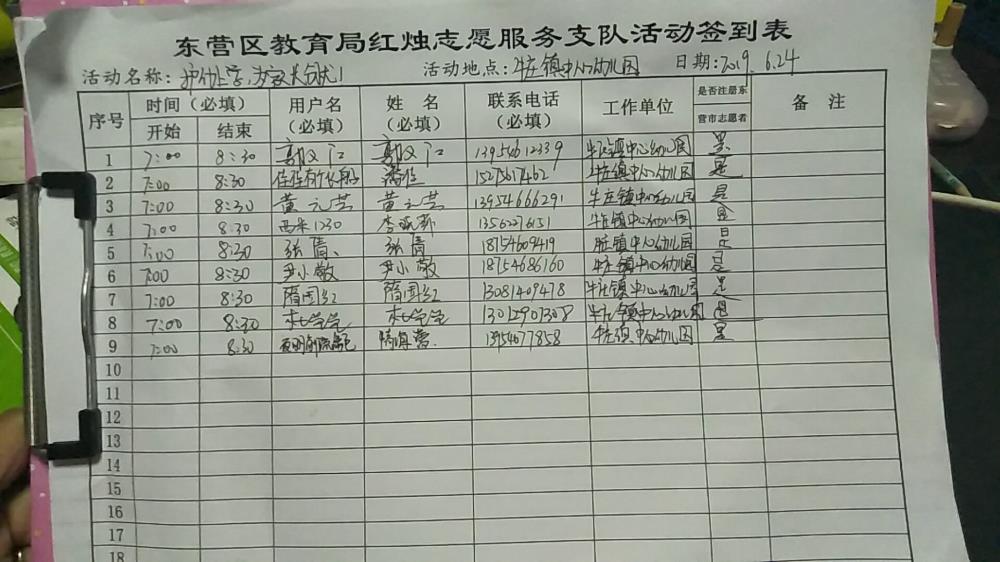 东营区教育局红烛志愿服务支队活动签到表
活动名称: 护幼上学, 活动地点: 牛庄镇中心幼儿园 日期: 2019.6.24
序号 时间（必填） 用户名（必填） 姓名（必填） 联系电话（必填） 工作单位 是否注册东营市志愿者 备注
开始 结束
1 7:00 8:30 牛庄镇中心幼儿园 是
2 7:00 8:30 牛庄镇中心幼儿园 是
3 7:00 8:30 黄元芸 黄元芸 13954666291 牛庄镇中心幼儿园 是
4 7:00 8:30 西米1230 13562276151 牛庄镇中心幼儿园 是
5 7:00 8:30 张倩 张倩 18754609419 牛庄镇中心幼儿园 是
6 7:00 8:30 尹小敬 尹小敬 18754686160 牛庄镇中心幼儿园 是
7 7:00 8:30 隋国红 隋国红 13081409478 牛庄镇中心幼儿园 是
8 7:00 8:30 杜学学 杜学学 13012907308 牛庄镇中心幼儿园 是
9 7:00 8:30 13954077858 牛庄镇中心幼儿园 是
10
11
12
13
14
15
16
17
18